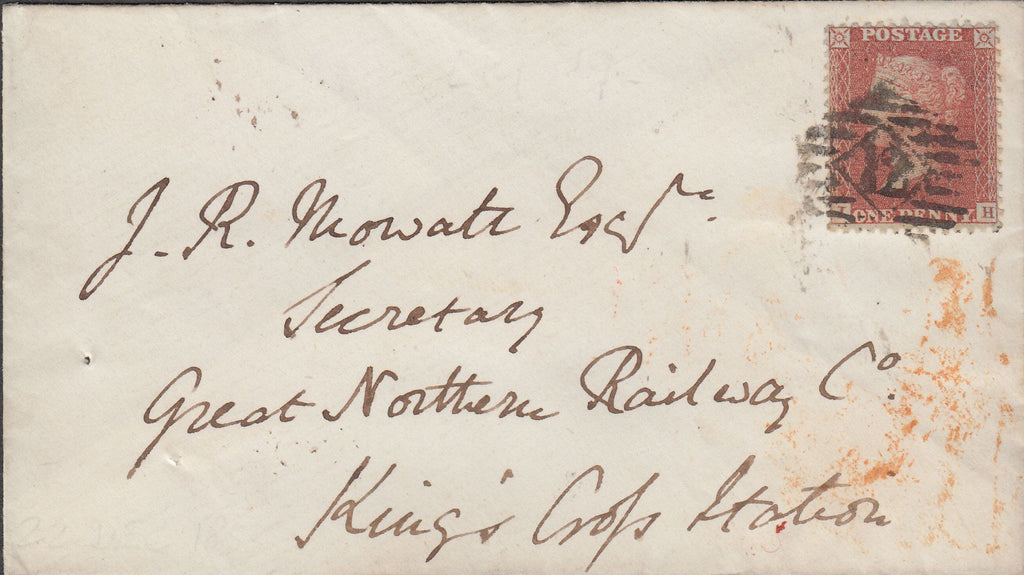 POSTAGE
12
ONE PENNY
H
J. R. Mowatt Esqre.
Secretary
Great Northern Railway Co.
King's Croſs Station